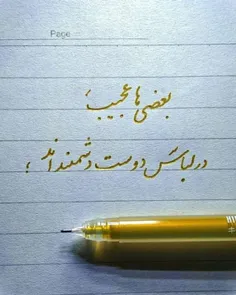 Page
بعضی ها عجیب،
در لباس دوست دشمنند اند ؛